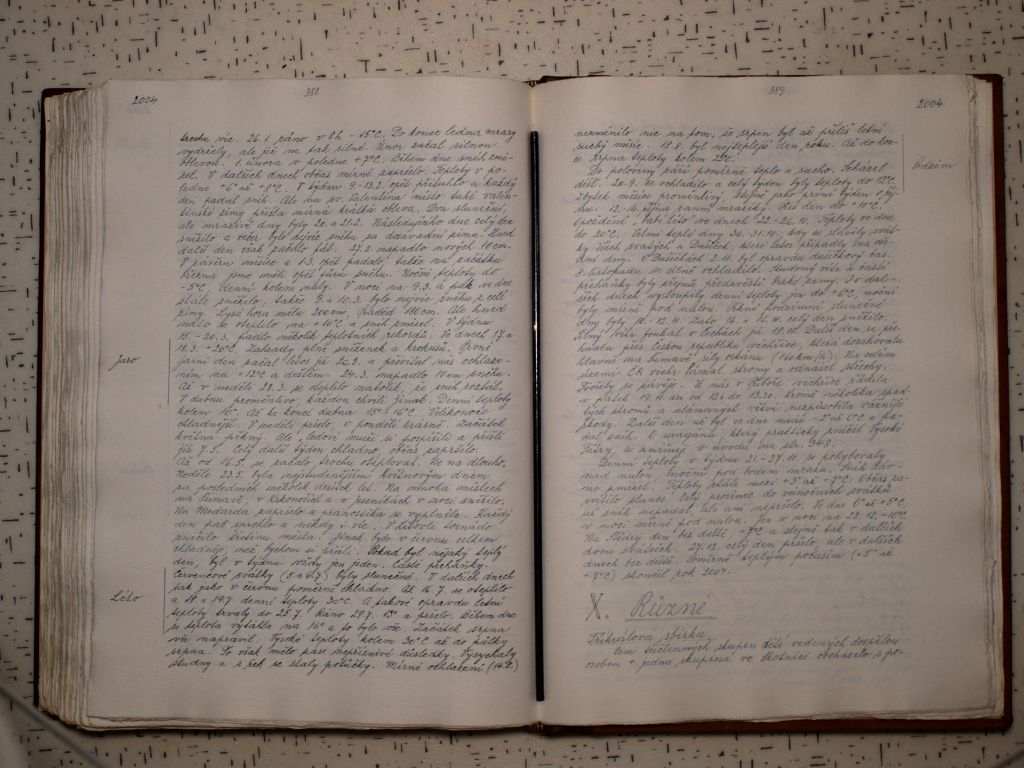 2004
388
trochu víc. 26.1. ráno v 8h -15°C. Do konce ledna mrazy
vydržely, ale již ne tak silné. Únor začal silnou
oblevou. 1. února v poledne +7°C. Během dne sníh zmi-
zel. V dalších dnech občas mírně zapršelo. Teploty v po-
ledne +6° až +8°C. V týdnu 9.-13.2. opět přituhlo a každý
den padal sníh. Ale na sv. Valentina místo tuhé valen-
tinské zimy přišla mírná krátká obleva. Dva slunečné,
ale mrazivé dny byly 20. a 21.2. Následujícího dne celý den
sněžilo a večer bylo nejvíc sněhu za dosavadní zimu. Hned
další den však začalo tát. 27.2. napadlo nových 10 cm.
V závěru měsíce a 1.3. opět padalo, takže na začátku
března jsme měli opět fůru sněhu. Noční teploty do
-5°C, denní kolem nuly. V noci na 9.3. a pak ve dne
stále sněžilo, takže 9. a 10.3. bylo nejvíc sněhu z celé
zimy. Lysá hora měla 200 cm, Praděd 180 cm. Ale hned
nato se oteplilo na +10°C a sníh zmizel. V týdnu
15.-20.3. padlo několik teplotních rekordů. Ve dnech 17. a
18.3. +20°C. Zahrady plné sněženek a krokusů. První
Jaro
jarní den začal letos již 20.3. - převítal nás ochlaze-
ním na +12°C a deštěm. 24.3. napadlo 10 cm sněhu.
Až v neděli 28.3. se oteplilo natolik, že sníh roztál.
V dubnu proměnlivo, každou chvíli jinak. Denní teploty
kolem 10°. Až ke konci dubna 15° a 16°C. Velikonoce
chladnější. V neděli pršelo, v pondělí krásně. Začátek
května pěkný. Ale "ledoví muži" si pospíšili a přišli
již 7.5. Celý další týden chladno, občas zapršelo.
Až od 16.5. se začalo trochu oteplovat. Ne na dlouho.
Neděle 23.5. byla nejstudenějším květnovým dnem
za posledních několik desítek let. Na mnoha místech
na Šumavě, v Krkonoších a v Jeseníkách v noci sněžilo.
Na Medarda zapršelo a pranostika se vyplnila. Každý
den pak sprchlo a někdy i víc. V Litovli tornádo
zničilo třetinu města. Jinak bylo v červnu celkem
chladněji, než bychom si přáli. Pokud byl nějaký teplý
den, byl v týdnu vždy jen jeden. Časté přeháňky.
Červencové svátky (5. a 6.7.) byly slunečné. V dalších dnech
tak jako v červnu poměrně chladno. Až 16.7. se oteplilo
Léto
a 18. a 19.7. denní teploty 30°C. A takové opravdu letní
teploty trvaly do 25.7. Ráno 27.7. 13° a pršelo. Během dne
se teplota vytáhla na 16° a to bylo vše. Začátek srpna
vše napravil. Vysoké teploty kolem 30°C až do půlky
srpna. To však mělo zase nepříznivé důsledky. Vysychaly
studny a z řek se staly potůčky. Mírné ochlazení (14.8.)
389
2004
nezměnilo nic na tom, že srpen byl až příliš letní
suchý měsíc. 18.8. byl nejteplejší den roku. Až do kon-
ce srpna teploty kolem 25°C.
Podzim
Do poloviny září poměrně teplo a sucho. Scházel
déšť. 20.9. se ochladilo a celý týden byly teploty do 12°C.
Zbytek měsíce proměnlivý, stejně jako první týden v říj-
nu. 12.-14. října ranní mrazíky. Přes den do +10°C.
Opožděné "babí léto" ve dnech 22.-26.10. Teploty ve dne
do 20°C. Velmi teplé dny 30.-31.10., kdy se slavily svát-
ky Všech svatých a Dušiček, které letos připadly na vše-
dní dny. O Dušičkách 2.11. byl opravdu dušičkový čas.
8. listopadu se silně ochladilo. Studený vítr a časté
přeháňky byly zřejmě předzvěstí brzké zimy. I v dal-
ších dnech vystoupily denní teploty jen do +6°C, noční
byly mírně pod nulou. Pěkné podzimní slunečné
dny byly 10.-12.11. Zato 15. a 16.11. celý den sněžilo.
Silný vítr foukal v Čechách již 18.11. Další den se pře-
hnala přes Českou republiku vichřice, která dosahovala
hlavně na Šumavě síly orkánu (160 km/h). Na celém
území ČR vichr lámal stromy a odnášel střechy.
Tvořily se závěje. U nás v Kateře vichřice řádila
v pátek 19.11. asi od 12h do 13.30. Kromě několika spad-
lých stromů a ulámaných větví nezpůsobila vážnější
škody. Další den už byl ve dne mráz -2° až 0°C a pa-
dal sníh. O uragánu, který prakticky zničil Vysoké
Tatry, se zmiňuji v úvodu na str. 348.
Denní teploty v týdnu 21.-27.11. se pohybovaly
nad nulou, noční pod bodem mrazu. Sníh dáv-
no zmizel. Teploty stále mezi +3° až -7°C. Občas za-
svítilo slunce. Celý prosinec do vánočních svátků
už sníh nepadal, ale ani nepršelo. Ve dne 0° až +5°C,
v noci mírně pod nulou. Jen v noci na 22.12. -10°C.
Na Štědrý den bez deště, +7°C a stejně tak v dalších
dvou svátcích. 27.12. celý den pršelo, ale v dalších
dnech bez deště. Poměrně teplým počasím (+5° až
+7°C) skončil rok 2004.
X. Různé
Tříkrálová sbírka.
Osm tříčlenných skupin dětí vedených dospělou
osobou + jedna skupina ve Skotnici obcházelo s po-